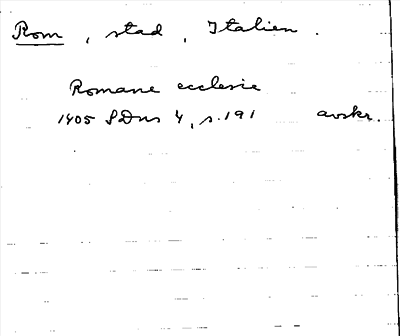 Rom, stad, Italien.
Romane ecclesie
1405 SDns 4, s. 191 avskr.